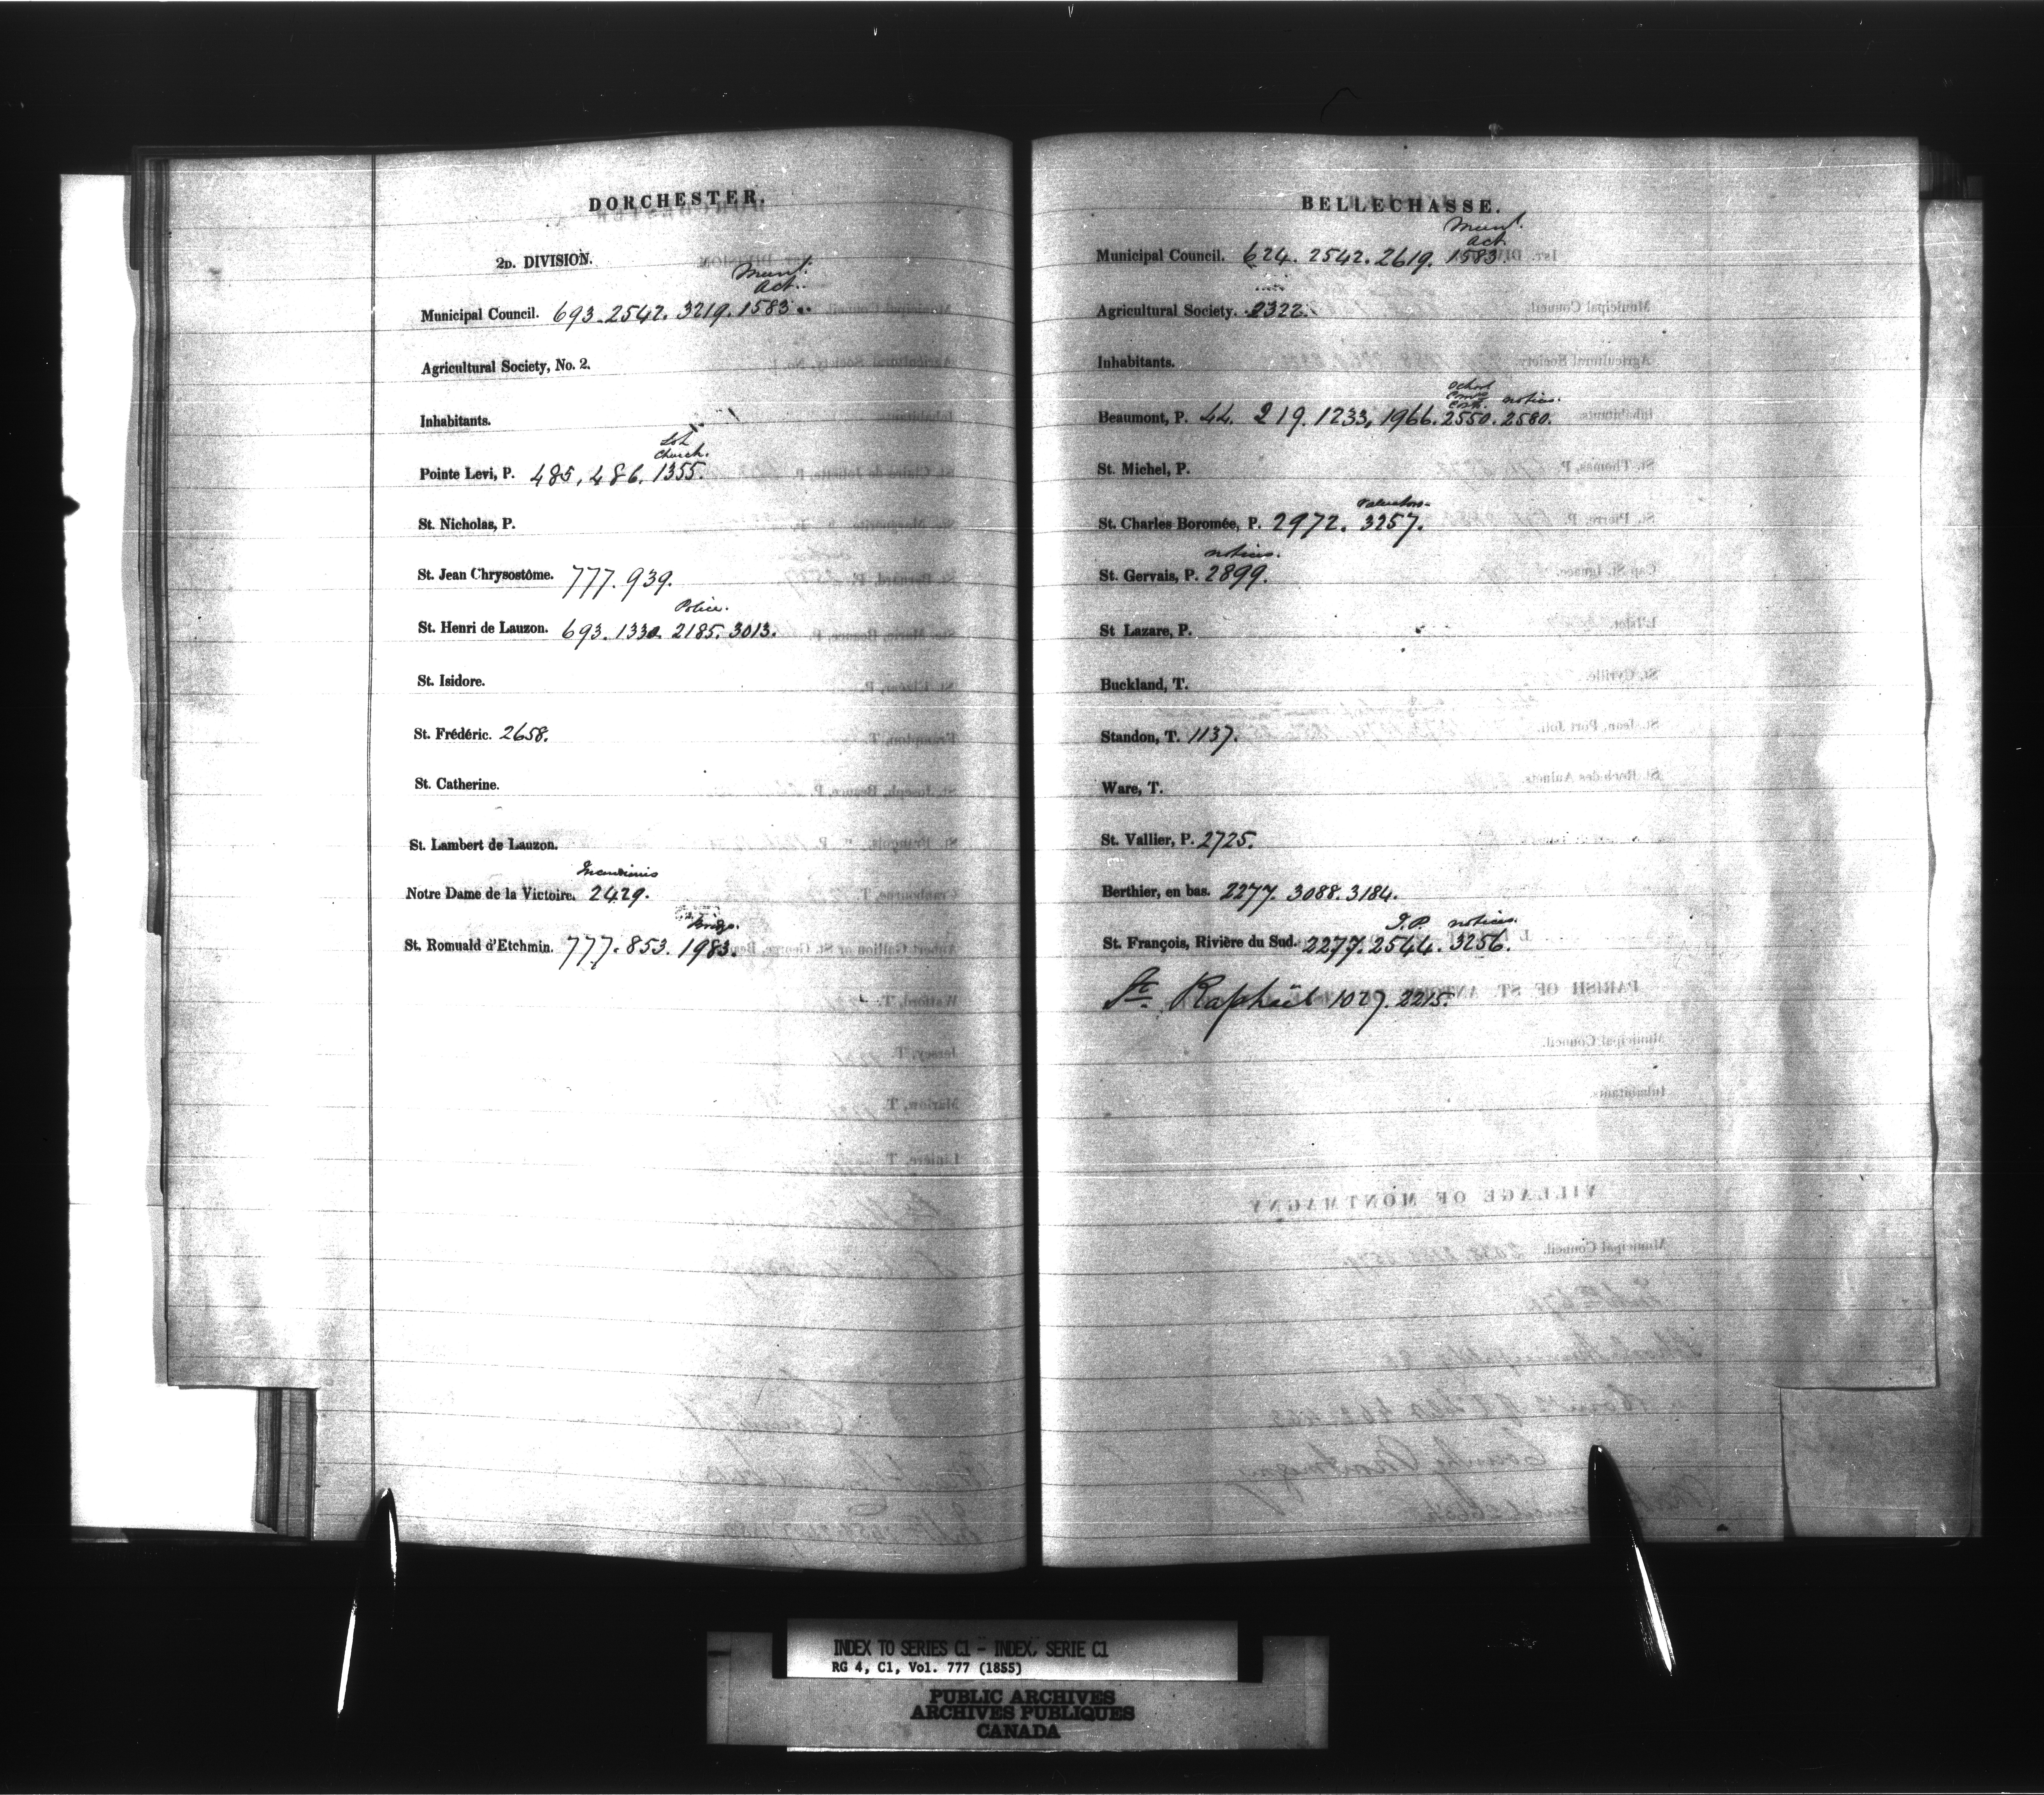 DORCHESTER.
2D. DIVISION.
Munl.
Act.
Municipal Council. 693. 2542. 3219. 1583.
Agricultural Society, No. 2.
Inhabitants.
Lot
Church.
Pointe Levi, P. 485, 486. 1355.
St. Nicholas, P.
St. Jean Chrysostôme. 777. 939.
Police.
St. Henri de Lauzon. 693. 1330. 2185. 3013.
St. Isidore.
St. Frédéric. 2658.
St. Catherine.
St. Lambert de Lauzon.
Notre Dame de la Victoire. 2429.
St. Romuald d'Etchmin. 777. 853. 1983.
BELLECHASSE.
Munl.
Act.
Municipal Council. 624. 2542. 2619. 1583
Agricultural Society. 2322.
Inhabitants.
School
notices.
Beaumont, P. 44. 219. 1233, 1966. 2550. 2580.
St. Michel, P.
Valuators.
St. Charles Boromée, P. 2972. 3257.
notices.
St. Gervais, P. 2899.
St Lazare, P.
Buckland, T.
Standon, T. 1137.
Ware, T.
St. Vallier, P. 2725.
Berthier, en bas. 2277. 3088. 3184.
J.P. notices.
St. François, Rivière du Sud. 2277. 2544. 3256.
St. Raphaël 1027. 2215.
INDEX TO SERIES C1 - INDEX, SERIE C1
RG 4, C1, Vol. 777 (1855)
PUBLIC ARCHIVES
ARCHIVES PUBLIQUES
CANADA